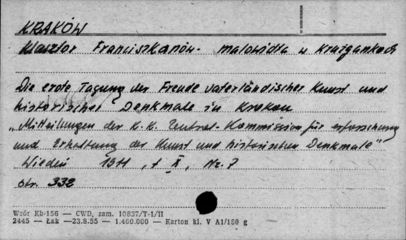 KRAKÓW
Klasztor Franciszkanów - malowidła w krużgankach
Die erste Tagung der Freude vaterländischer Kunst und
historischer Denkmale in Krakau
„Mitteilungen der K.K. Zentral-Kommission für erforschung
und Erhaltung der Kunst und historischen Denkmale"
Wiedeń 1911, t X, Nr. 7
str. 332
Wzór Kb-156 — CWD, zam. 10837/T-1/II
2445 — Łak —23.8.55 — 1.460.000 — Karton kl. V A1/180 g